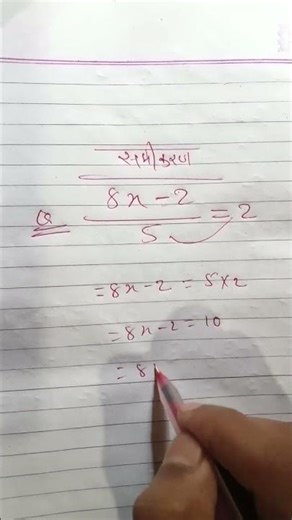 समीकरण
Q 8x - 2 / 5 = 2
= 8x - 2 = 5 x 2
= 8x - 2 = 10
= 8